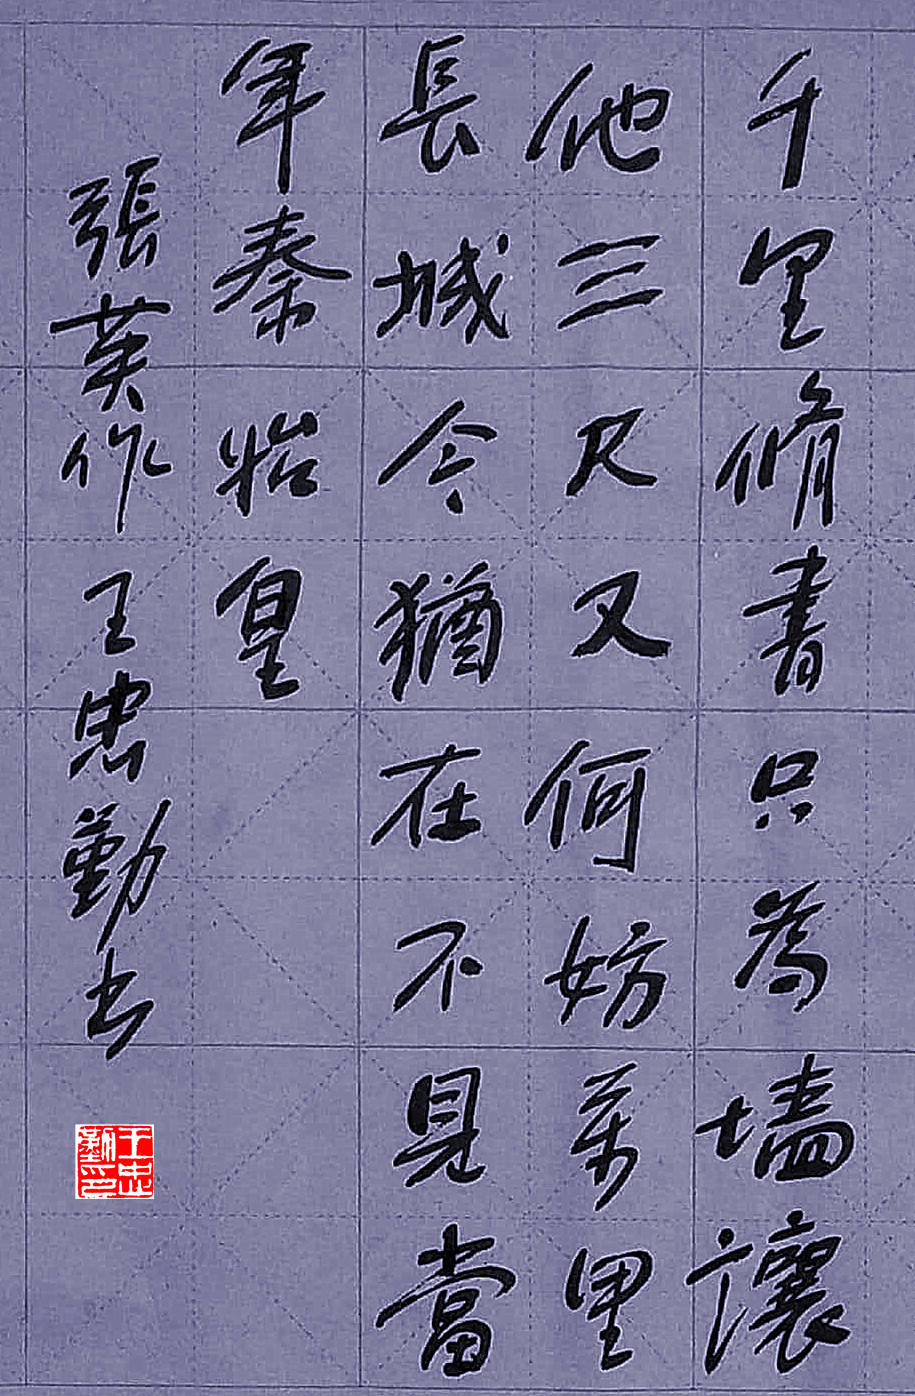 千里脩書只為墻讓
他三尺又何妨萬里
長城今猶在不見當
年秦始皇
張英作王忠勤书
王忠勤印